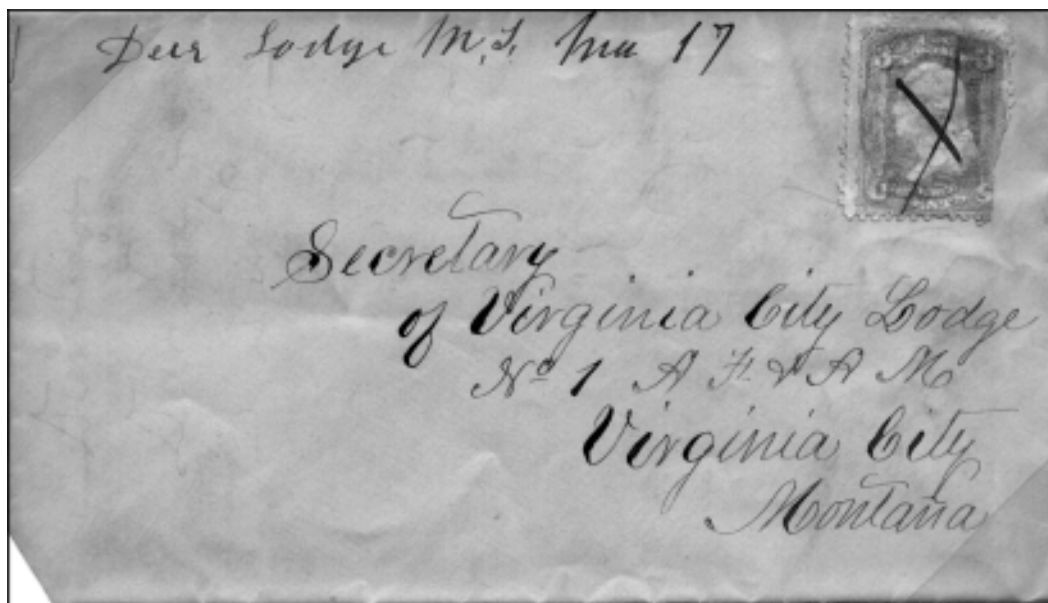 Deer Lodge M.T. Mar 17
Secretary
of Virginia City Lodge
No 1 A F & A M
Virginia City
Montana